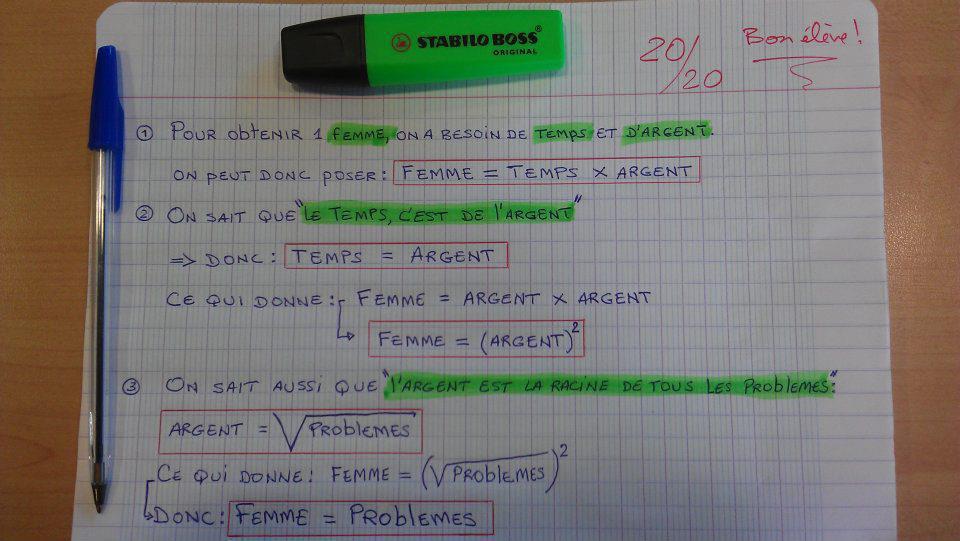 STABILO BOSS
ORIGINAL
20/20
Bon élève!
① POUR ObTENIR 1 FEMME, ON A BESOIN DE TEMPS ET D'ARGENT.
ON PEUT DONC POSER: FEMME = TEMPS × ARGENT
② ON SAIT QUE "LE TEMPS, C'EST DE l'ARGENT"
=> DONC: TEMPS = ARGENT
CE QUI DONNE: FEMME = ARGENT × ARGENT
↳ FEMME = (ARGENT)²
③ ON SAIT AUSSI QUE "l'ARGENT EST LA RACINE DE TOUS LES PRObLEMES":
ARGENT = √PRObLEMES
CE QUI DONNE: FEMME = (√PRObLEMES)²
↳ DONC: FEMME = PRObLEMES